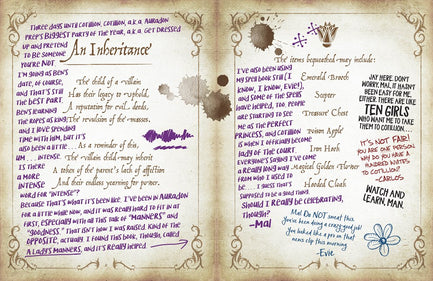 THREE DAYS UNTIL COTILLION. COTILLION, A.K.A. AURADON
PREP'S BIGGEST PARTY OF THE YEAR, A.K.A. GET DRESSED
UP AND PRETEND
TO BE SOMEONE
YOU'RE NOT.
I'M GOING AS BEN'S
DATE, OF COURSE,
AND THAT'S STILL
THE BEST PART.
BEN'S LEARNING
THE ROPES AS KING,
AND I LOVE SPENDING
TIME WITH HIM, BUT IT'S
ALSO BEEN A LITTLE...
UM... INTENSE.
IS THERE
A MORE
INTENSE
WORD FOR "INTENSE"?
BECAUSE THAT'S WHAT IT'S BEEN LIKE. I'VE BEEN IN AURADON
FOR A LITTLE WHILE NOW, AND IT WAS REALLY HARD TO FIT IN AT
FIRST, ESPECIALLY WITH ALL THIS TALK OF "MANNERS" AND
"GOODNESS." THAT ISN'T HOW I WAS RAISED. KIND OF THE
OPPOSITE, ACTUALLY. I FOUND THIS BOOK, THOUGH, CALLED
A LADY'S MANNERS, AND IT'S REALLY HELPED
An Inheritance
The child of a villain
Has their legacy to uphold,
A reputation for evil deeds,
The revulsion of the masses.
As a reminder of this,
The villain child may inherit
A token of the parent's lack of affection
And their endless yearning for power.
The items bequeathed may include:
Emerald Brooch
Scepter
Treasure Chest
Poison Apple
Iron Hook
Magical Golden Flower
Hooded Cloak
I'VE ALSO BEEN USING
MY SPELL BOOK STILL (I
KNOW, I KNOW, EVIE!),
AND SOME OF THE SPELLS
HAVE HELPED, TOO. PEOPLE
ARE STARTING TO SEE
ME AS THE PERFECT
PRINCESS, AND COTILLION
IS WHEN I OFFICIALLY BECOME
LADY OF THE COURT.
EVERYONE SAYING I'VE COME
A REALLY LONG WAY
FROM WHO I USED TO
BE.... I GUESS THAT'S
SUPPOSED TO BE A GOOD THING.
SHOULD I REALLY BE CELEBRATING,
THOUGH?
-MAL
JAY HERE. DON'T
WORRY, MAL. IT HASN'T
BEEN EASY FOR ME,
EITHER. THERE ARE LIKE
TEN GIRLS
WHO WANT ME TO TAKE
THEM TO COTILLION...
IT'S NOT FAIR!
YOU ARE ONE PERSON.
WHY DO YOU HAVE A
HUNDRED DATES
TO COTILLION?
-CARLOS
WATCH AND
LEARN, MAN.
Mal Do NOT sweat this.
You've been doing a crazy good job!
You looked like a pro in that
news clip this morning.
-Evie